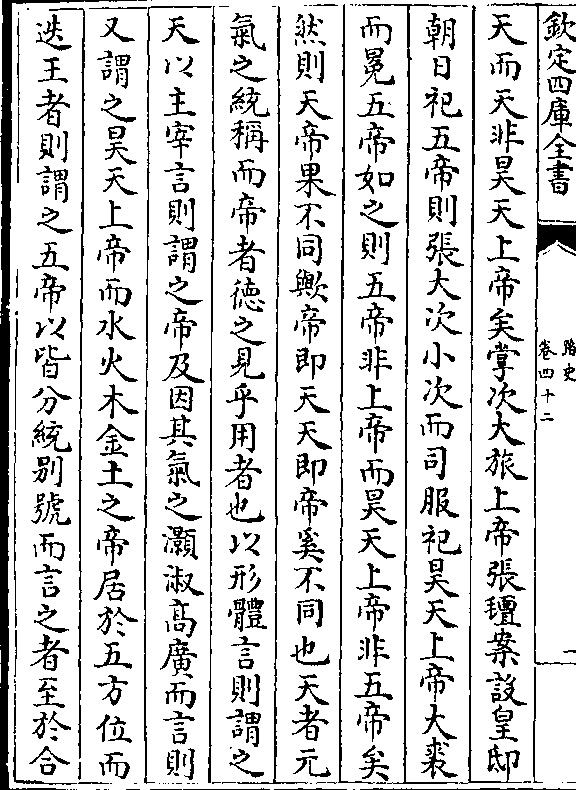 欽定四庫全書
路史
卷四十二
一
天而天非昊天上帝矣掌次大旅上帝張氊案設皇邸
朝日祀五帝則張大次小次而司服祀昊天上帝大裘
而冕五帝如之則五帝非上帝而昊天上帝非五帝矣
然則天帝果不同歟帝即天天即帝奚不同也天者元
氣之統稱而帝者德之見乎用者也以形體言則謂之
天以主宰言則謂之帝及因其氣之灝淑高廣而言則
又謂之昊天上帝而水火木金土之帝居於五方位而
迭王者則謂之五帝以皆分統别號而言之者至於合